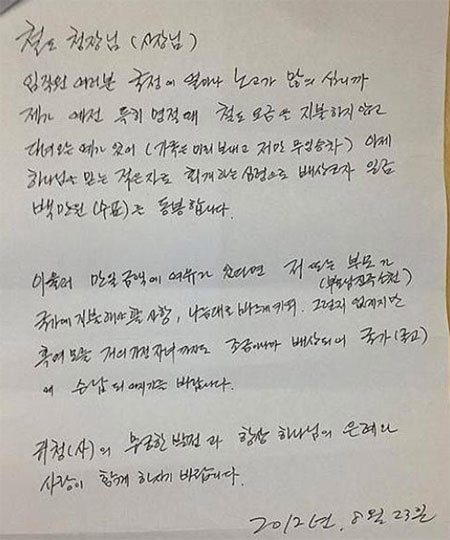 철도 청장님 (사장님)
임직원 여러분 국정에 얼마나 노고가 많으십니까
제가 예전 특히 명절때 철도 요금을 지불하지 않고
다녀오는 예가 있어 (가족은 미리 보내고 저만 무임승차) 이제
하나님을 믿는 적은자로 회개하는 심령으로 배상코자 일금
백만원 (수표)을 동봉합니다.
이울러 만일 금액에 여유가 있다면 저 또는 부모가
국가에 지불해야 할 사항, 나름대로 바르게 키워. 그렇지 않겠지만
혹여 모를 저의 가정 자녀까지도 조금이나마 배상되어 국가 (국고)
에 수납 되어지기를 바랍니다.
귀청(사)의 무궁한 발전과 항상 하나님의 은혜와
사랑이 함께 하시기 바랍니다.
2012년. 8월 23일